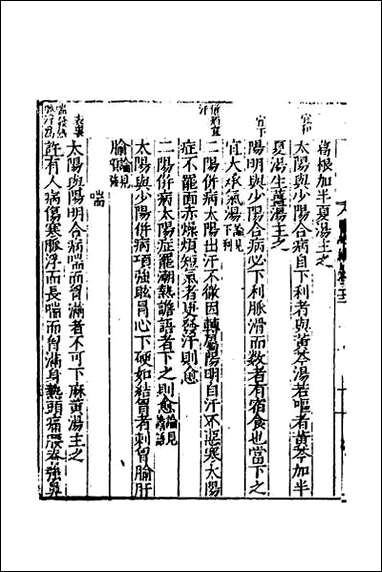 葛根加半夏湯主之
太陽與少陽合病自下利者與黃芩湯若嘔者黃芩加半
夏湯生薑湯主之
陽明與少陽合病必下利脉滑而数者有宿食也當下之
宜大承氣湯論見下利
二陽併病太陽出汗不徹因轉屬陽明自汗不惡寒太陽
症不罷面赤燥煩短氣者更發汗則愈
二陽併病太陽症罷潮熱譫語者下之則愈論見譫語
太陽與少陽併病項強眩冒心下硬如結胷者刺胷腧肝
腧論見項強
喘
太陽與陽明合病喘而胷滿者不可下麻黃湯主之
許有人病傷寒脉浮而長喘而胷滿身熱頭痛腰脊強鼻
宜和
宜下
宜汗
表裏